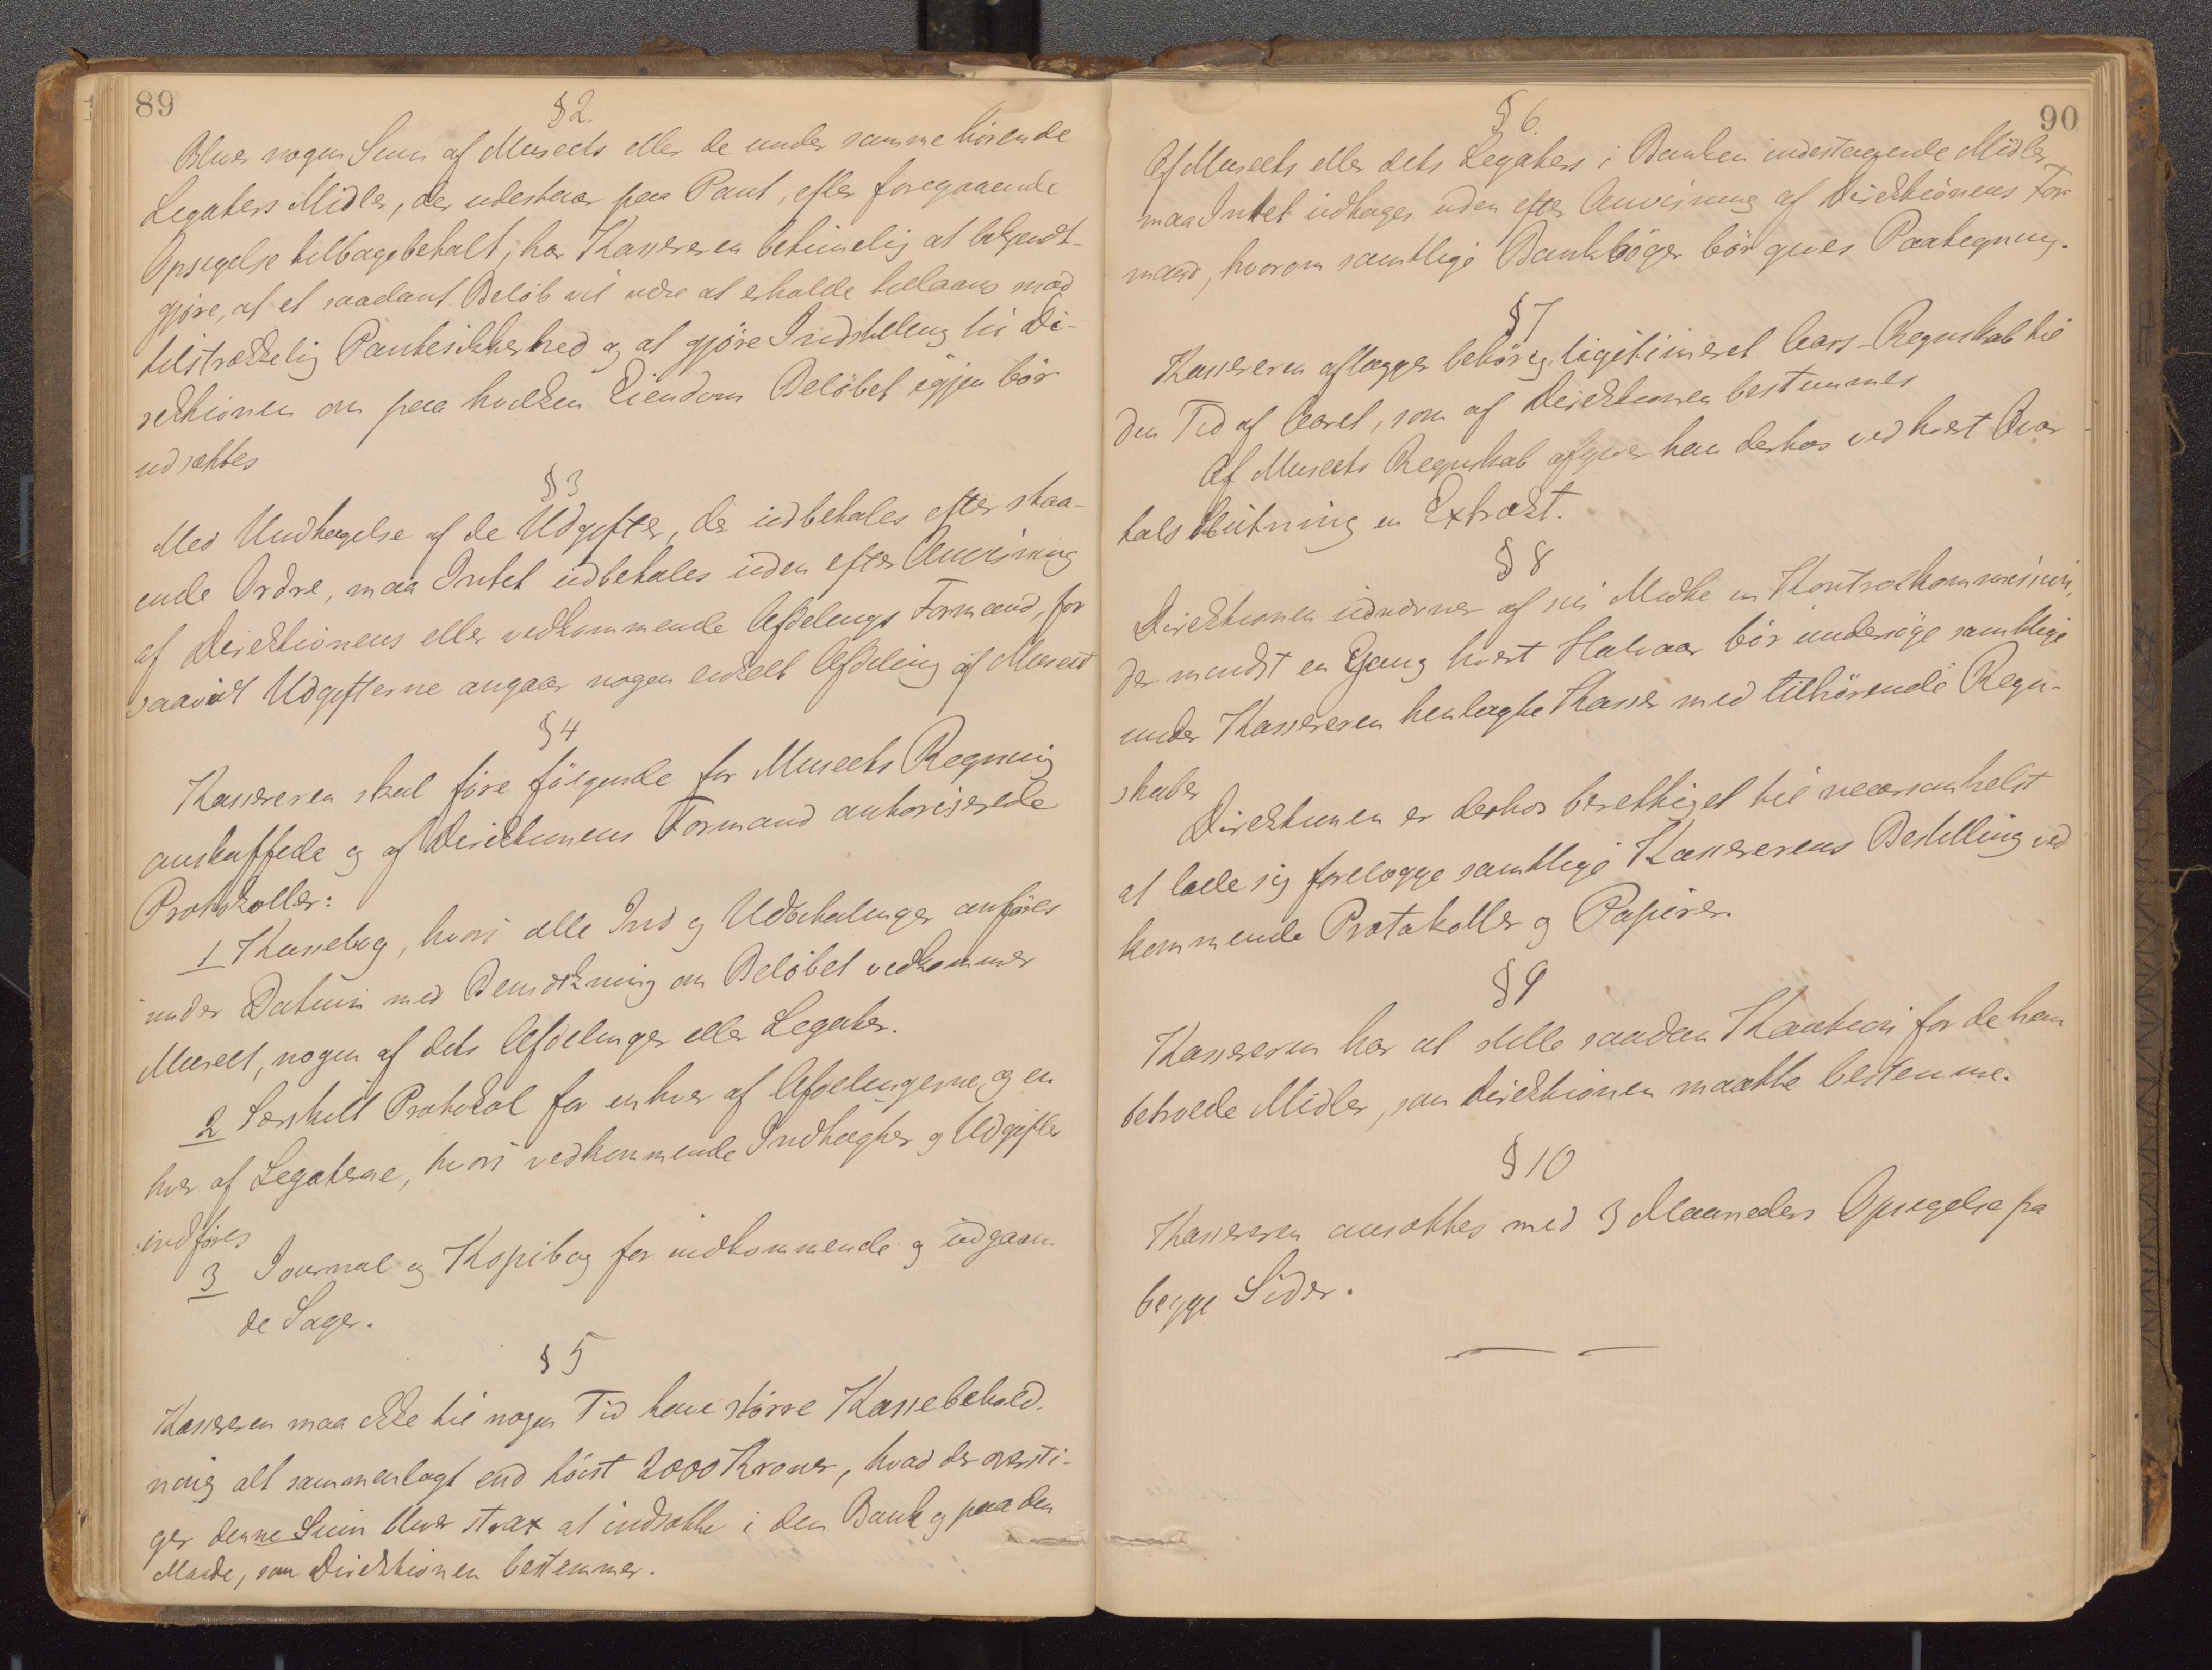 89
§ 2.
Bliver nogen Sum af Museets eller de under samme hörende
Legaters Midler, der udestaar paa Pant, efter foregaaende
Opsigelse tilbagebetalt, har Kassereren betimelig at bekjendt-
gjöre, at et saadant Belöb vil være at erholde tillaans mod
tilstrækkelig Pantesikkerhed og at gjöre Indstilling til Di-
rektionen om paa hvilken Eiendom Belöbet igjen bör
udsættes
§ 3
Med Undtagelse af de Udgifter, der udbetales efter staa-
ende Ordre, maa Intet udbetales uden efter Anvisning
af Direktionens eller vedkommende Afdelings Formand, for
saavidt Udgifterne angaar nogen enkelt Afdeling af Museet
§ 4
Kassereren skal före fölgende for Museets Regning
anskaffede og af Direktionens Formand autoriserede
Protokoller:
1 Kassebog, hvori alle Ind og Udbetalinger anföres
under Datum med Bemærkning om Belöbet vedkommer
Museet, nogen af dets Afdelinger eller Legater.
2 Særskilt Protokol for enhver af Afdelingerne, og en
hver af Legaterne, hvori vedkommende Indtægter og Udgifter
indföres
3 Journal og Kopibog for indkommende og udgaaen
de Sager.
§ 5
Kassereren maa ikke til nogen Tid have större Kassebehold-
ning alt sammenlagt end höist 2000 Kroner, hvad der oversti-
ger denne Sum bliver strax at indsætte i den Bank og paa den
Maade, som Direktionen bestemmer.
90
§ 6.
Af Museets eller dets Legaters i Banken indestaaende Midler
maa Intet udtages uden efter Anvisning af Direktionens For
mand, hvorom samtlige Bankböger bör gives Paategning.
§ 7
Kassereren aflægger behörig legitimeret Aars-Regnskab til
den Tid af Aaret, som af Direktionen bestemmes
Af Museets Regnskab afgiver han derhos ved hvert Qvar
tals Slutning en Extrakt.
§ 8
Direktionen udnævner af sin Midte en Kontrolkommission,
der mindst en Gang hvert Halvaar bör undersöge samtlige
under Kassereren henlagte Kasser med tilhörende Regn-
skaber
Direktionen er derhos berettiget til naarsomhelst
at lade sig forelægge samtlige Kassererens Bestilling ved
kommende Protokoller og Papirer.
§ 9
Kassereren har at stille saadan Kaution for de ham
betroede Midler, som Direktionen maatte bestemme.
§ 10
Kassereren ansættes med 3 Maaneders Opsigelse fra
begge Sider.